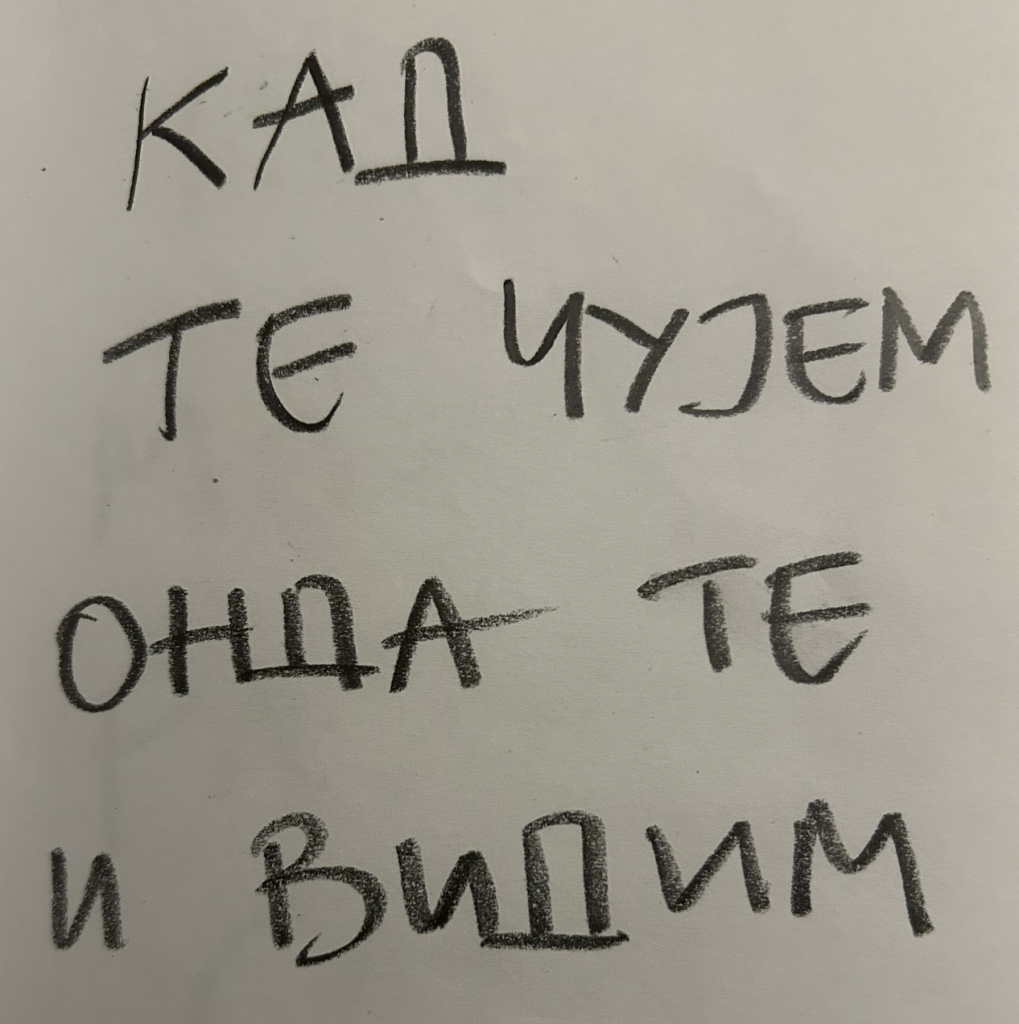 КАД
ТЕ ЧУЈЕМ
ОНДА ТЕ
И ВИДИМ